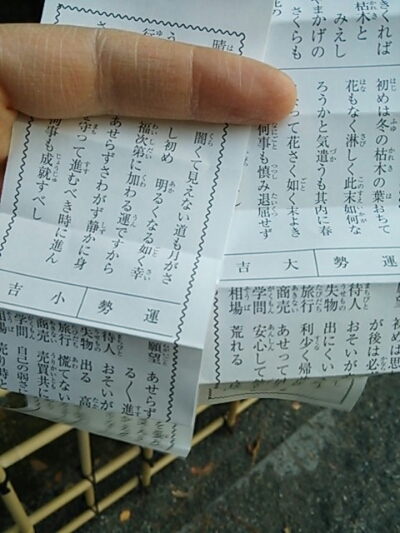 きくれば
枯木と
みえし
やまかげの
さくらも
初めは冬の枯木の葉おちて
花もなく淋しく此末如何な
ろうかと気遣うも其内に春
って花さく如く末よき
何事も慎み退屈せず
運勢
大吉
初めは思
が後は必
待人 おそいが
失物 出にくい
旅行 利少く帰
商売 あせって
学問 安心して
相場 荒れる
闇くて見えない道も月がさ
し初め 明るくなる如く幸
福次第に加わる運ですから
あせらずさわがず静かに身
を守って進むべき時に進ん
何事も成就すべし
運勢
小吉
願望 あせらず
るく進
待人 おそいが
失物 出る 高
旅行 慌てない
商売 売買共に
学問 自己の弱さ